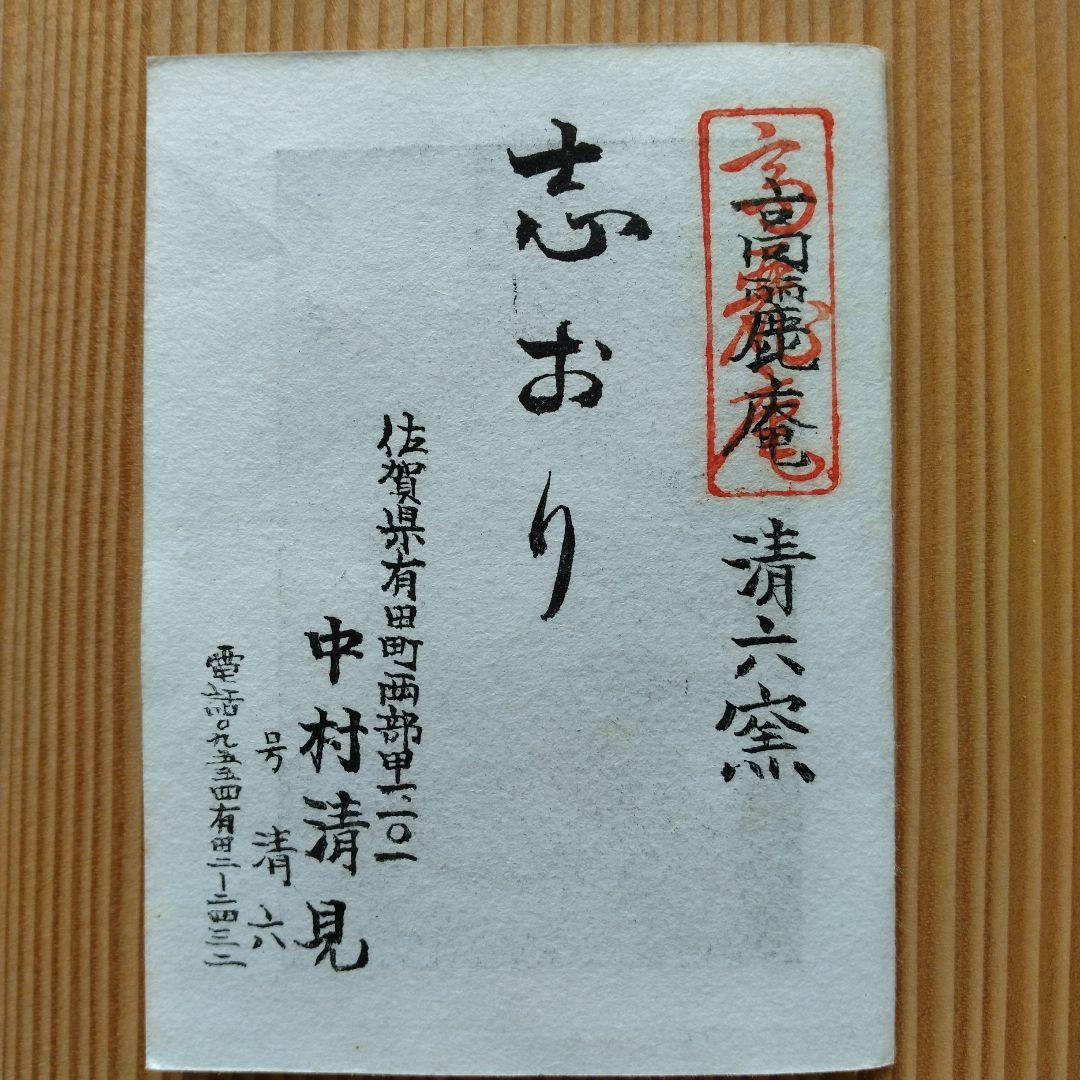 高麗庵 清六窯
志おり
佐賀県有田町西部甲一、二〇一
中村清見
号 清六
電話〇九五五四有田二ー二四三二